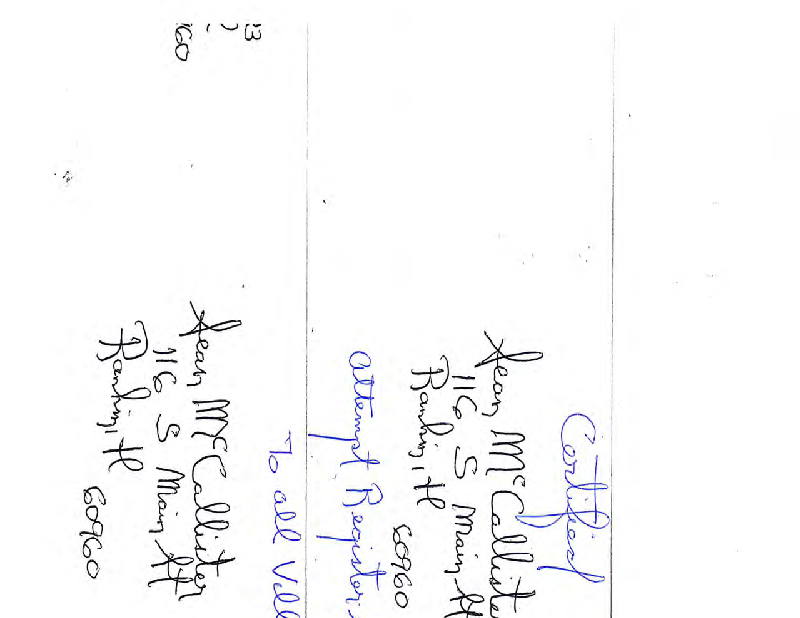 Certified
Jean McCalliste
116 S Main St
Rankin, Il
60960
attempt Register
To all Vill
13
60
Jean McCallister
116 S Main St
Rankin, Il
60960